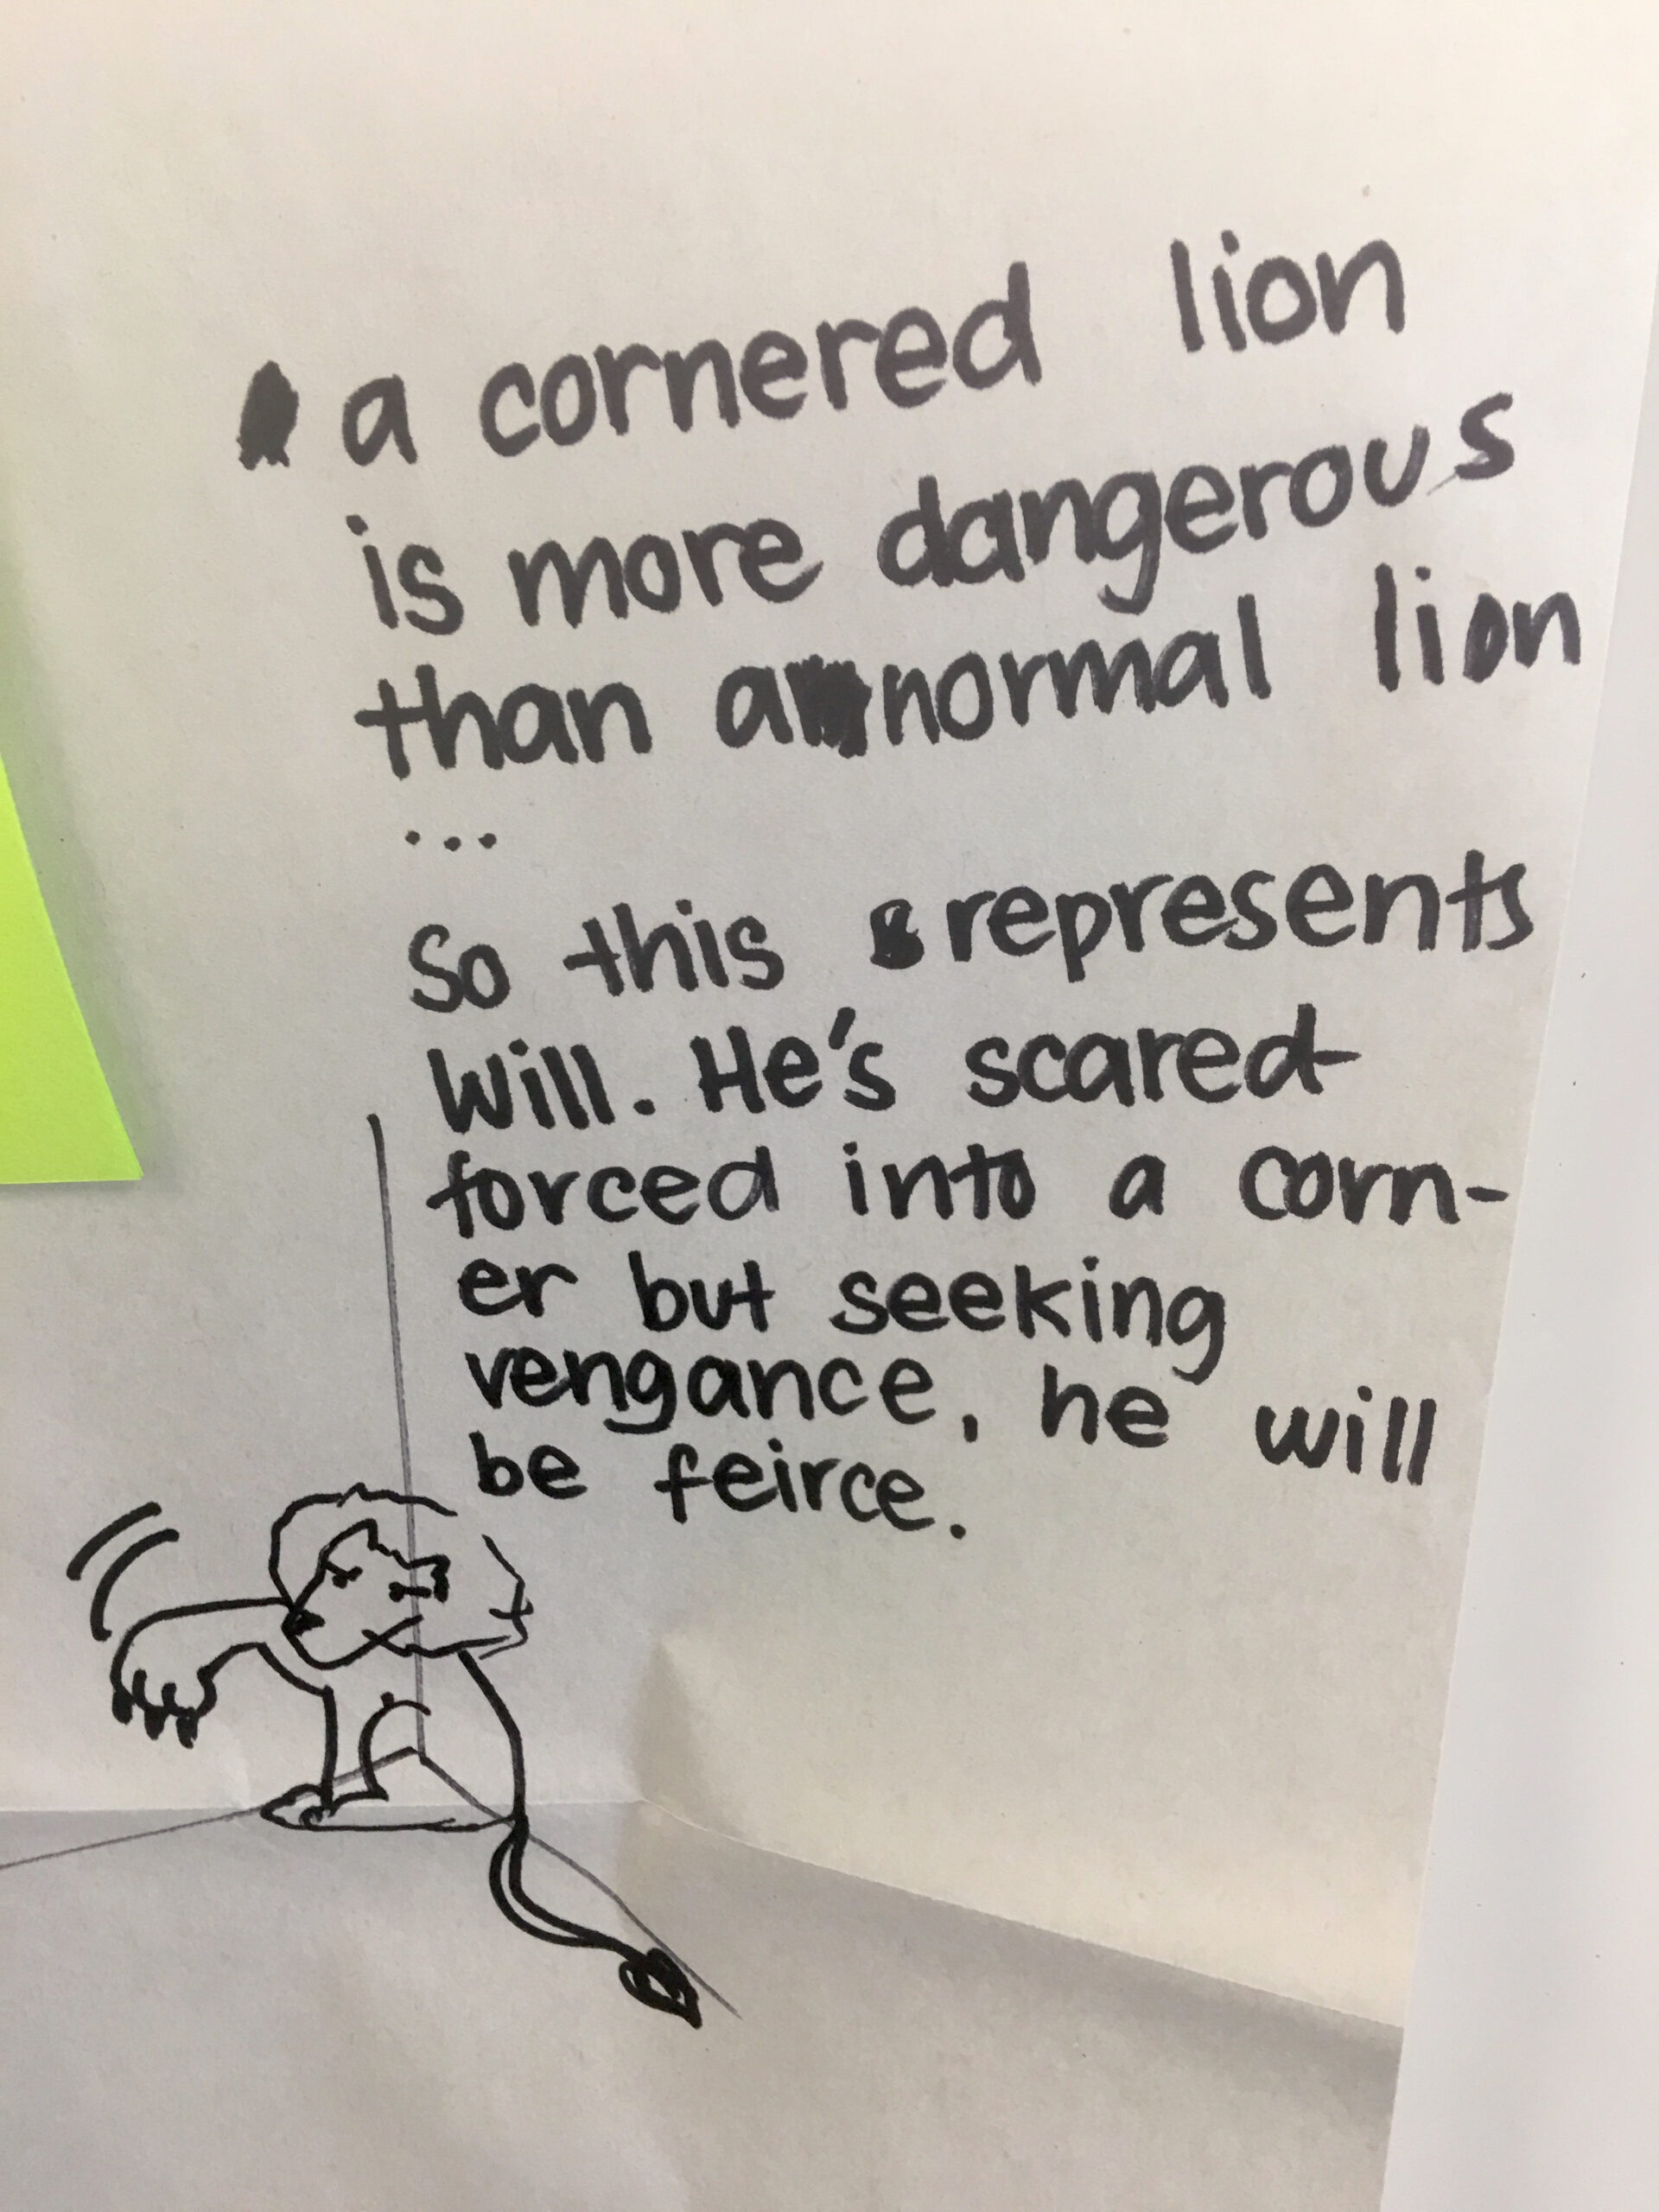 a cornered lion
is more dangerous
than a normal lion
...
So this represents
Will. He's scared
forced into a corn-
er but seeking
vengance, he will
be feirce.